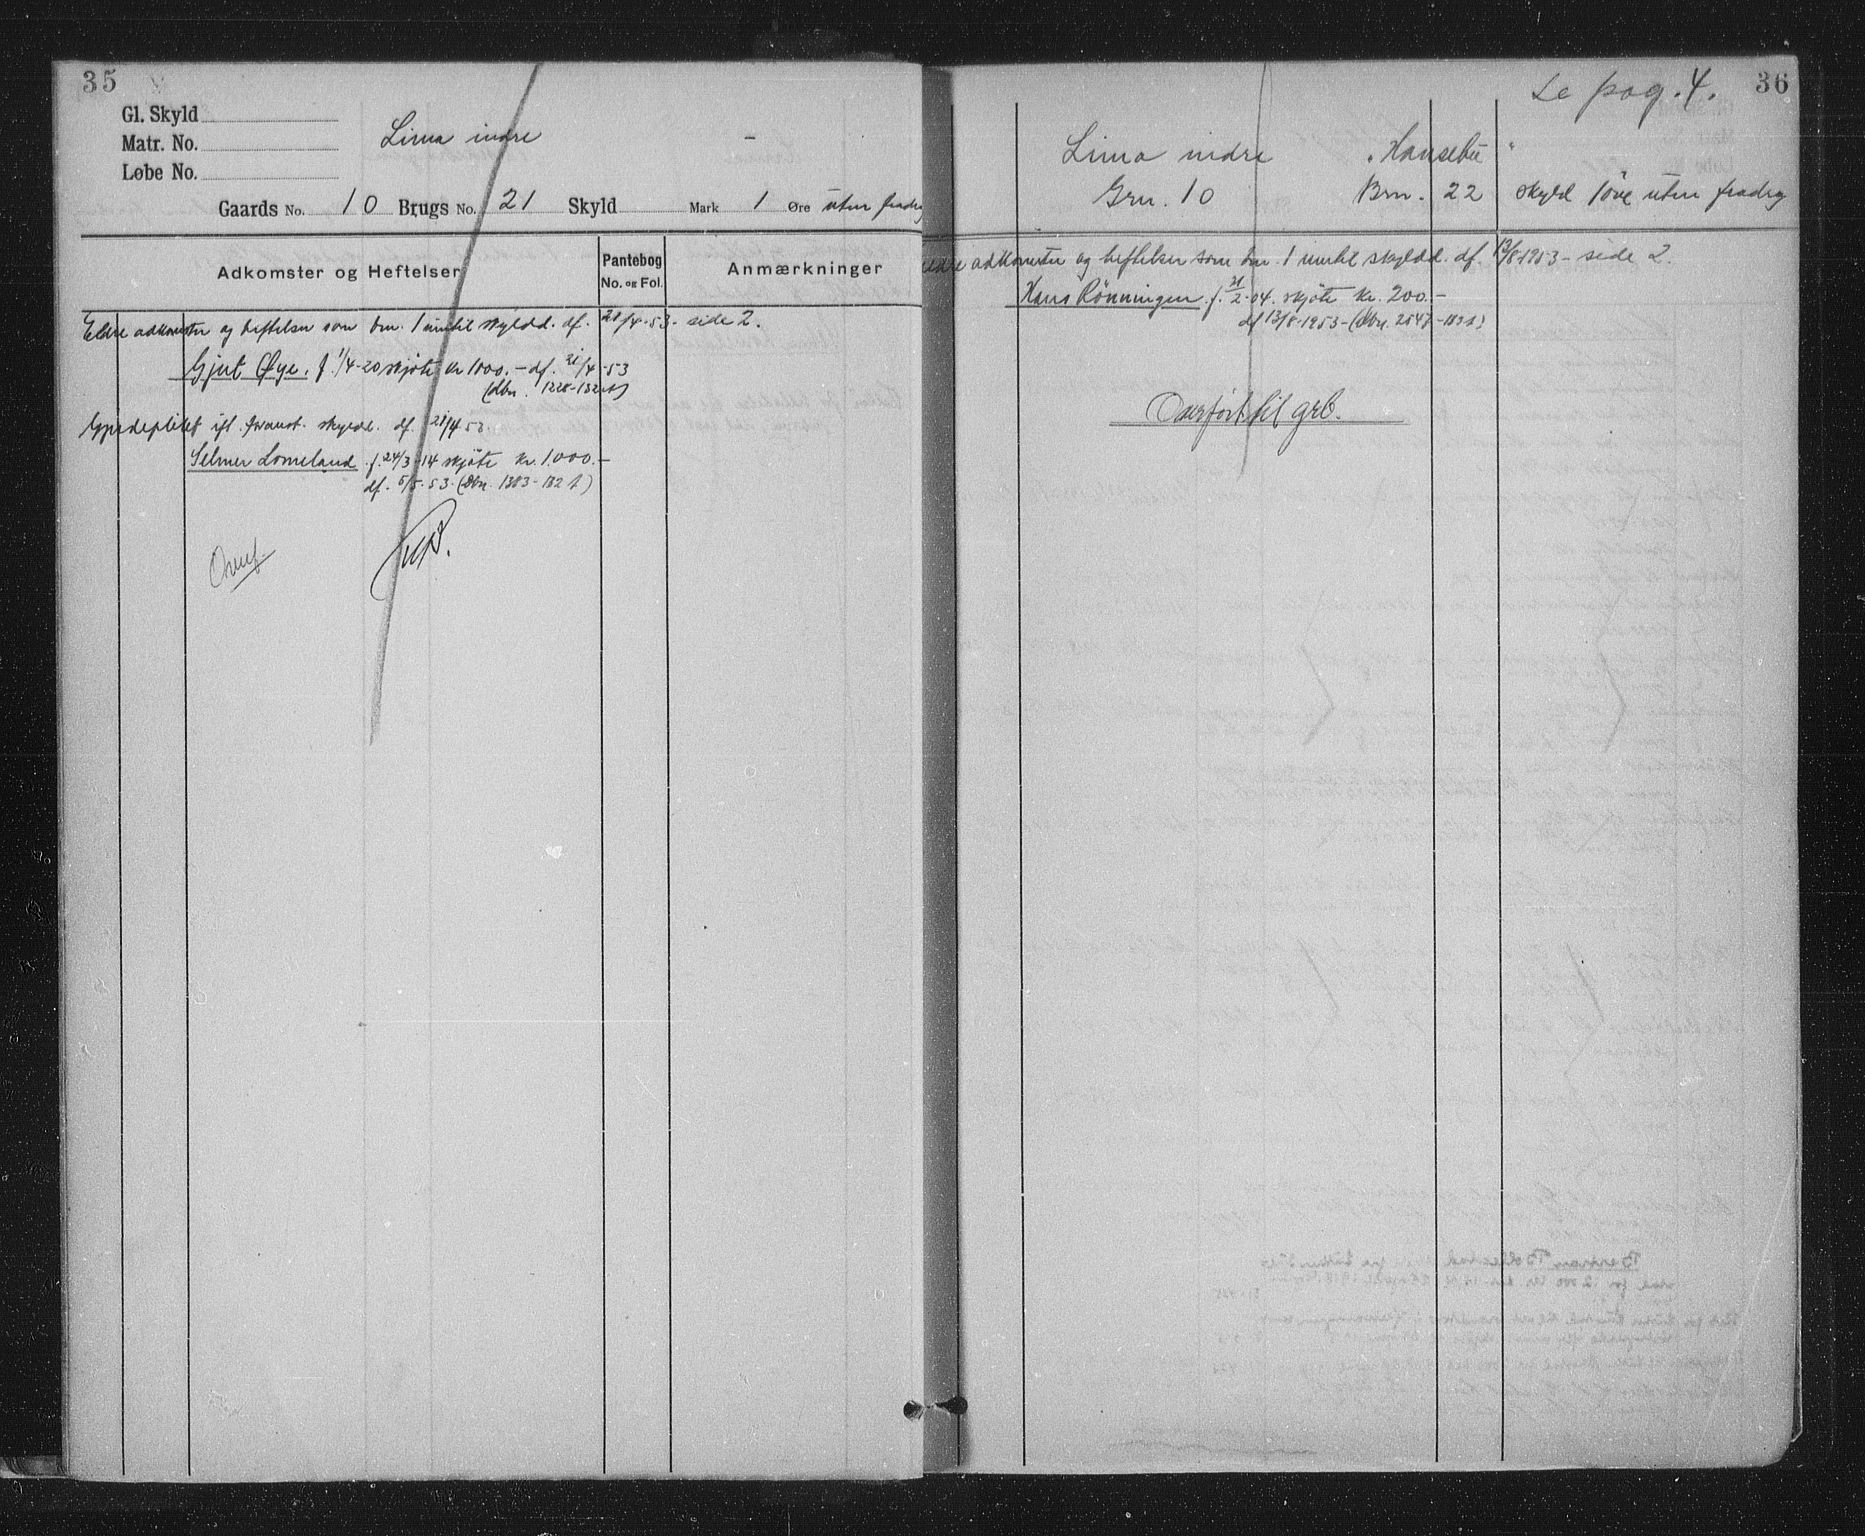 35
Gl. Skyld
Matr. No.
Løbe No.
Lima indre -
Gaards No. 10 Brugs No. 21 Skyld Mark 1 Øre uten fradrag
Adkomster og Heftelser
Pantebog
No. og Fol.
Anmærkninger
Eldre adkomster og heftelser som bnr. 1 inntil skyldd. df. 21/4-53 - side 2.
Gjert Øye. f. 1/4-20 skjøte kr 1000.- df. 21/4-53
(dbnr. 1228-132)
Gjerdeplikt ifl. foranst. skyldd. df. 21/4 53.
Selmer Lomeland f. 24/3-14 skjøte kr. 1.000.-
df. 5/5-53 (Dbnr. 1383-132)
Overf.
Se pag. 4. 36
Lima indre "Hansebu"
Grn. 10 Brn. 22 skyld 1 øre uten fradrag
Eldre adkomster og heftelser som bnr. 1 inntil skyldd. df. 13/8 1953 - side 2.
Hans Rønningen f. 21/2-04. skjøte kr. 200.-
df 13/8-1953 - (dbnr. 2547-133)
Overført til grb.